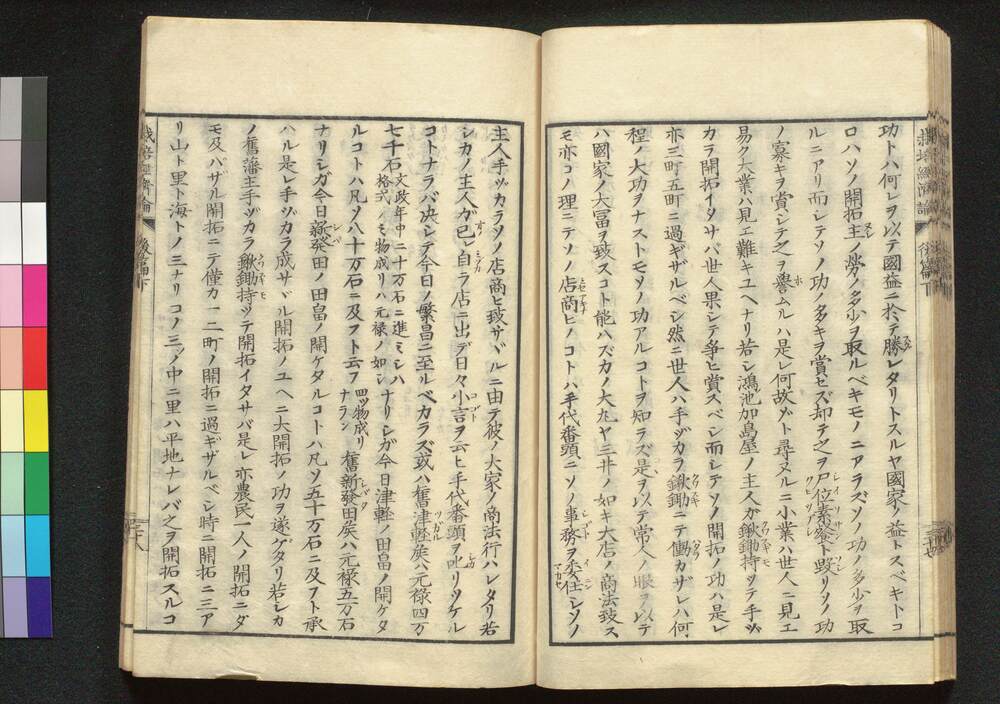 功トハ何レヲ以テ國益ニ於テ勝レタリトスルヤ國家ノ益トスベキトコ
ロハソノ開拓主ノ勞ノ多少ヲ取ルベキモノニアラズソノ功ノ多少ヲ取
ルニアリ而シテソノ功ノ多キヲ賞セズ却テ之ヲ尸位素餐ト毀リソノ功
ノ寡キヲ賞シテ之ヲ譽ムルハ是レ何故ゾト尋ヌルニ小業ハ世人ニ見エ
易ク大業ハ見エ難キユヘナリ若シ鴻池加島屋ノ主人ガ鍬鋤持ツテ手ヅ
カラ開拓イタサバ世人果シテ争ヒ賞スベシ而シテソノ開拓ノ功ハ是レ
亦三町五町ニ過ギザルベシ然ニ世人ハ手ヅカラ鍬鋤ニテ働カザレハ何
程ノ大功ヲナストモソノ功アルコトヲ知ラズ是ヲ以テ常人ノ眼ヲ以テ
ハ國家ノ大冨ヲ致スコト能ハズカノ大丸ヤ三井ノ如キ大店ノ商法致ス
モ亦コノ理ニテソノ店商ヒノコトハ手代番頭ニソノ事務ヲ委任シソノ
主人手ヅカラソノ店商ヒ致サヾルニ由テ彼ノ大家ノ商法行ハレタリ若
シカノ主人ガ已レ自ラ店ニ出デ日々小言ヲ云ヒ手代番頭ヲ叱リツケル
コトナラバ决シテ今日ノ繁昌ニ至ルベカラズ或ハ舊津軽矦ハ元禄四万
七千石文政年中ニ十万石ニ進ミシハ格式ノミ物成リハ元禄ノ如シナリシガ今日津軽ノ田畠ノ開ケタ
ルコトハ凡ソ八十万石ニ及フト云フ四ツ物成リナラン舊新發田矦ハ元禄五万石
ナリシガ今日新發田ノ田畠ノ開ケタルコトハ凡ソ五十万石ニ及フト承
ハル是レ手ヅカラ成サヾル開拓ノユヘニ大開拓ノ功ヲ遂ゲタリ若シカ
ノ舊藩主手ヅカラ鍬鋤持ツテ開拓イタサバ是レ亦農民一人ノ開拓ニダ
モ及バザル開拓ニテ僅カ一二町ノ開拓ニ過ギザルベシ時ニ開拓ニ三ア
リ山ト里ト海トノ三ナリコノ三ツノ中ニ里ハ平地ナレバ之ヲ開拓スルコ
栽培經濟論
後篇下